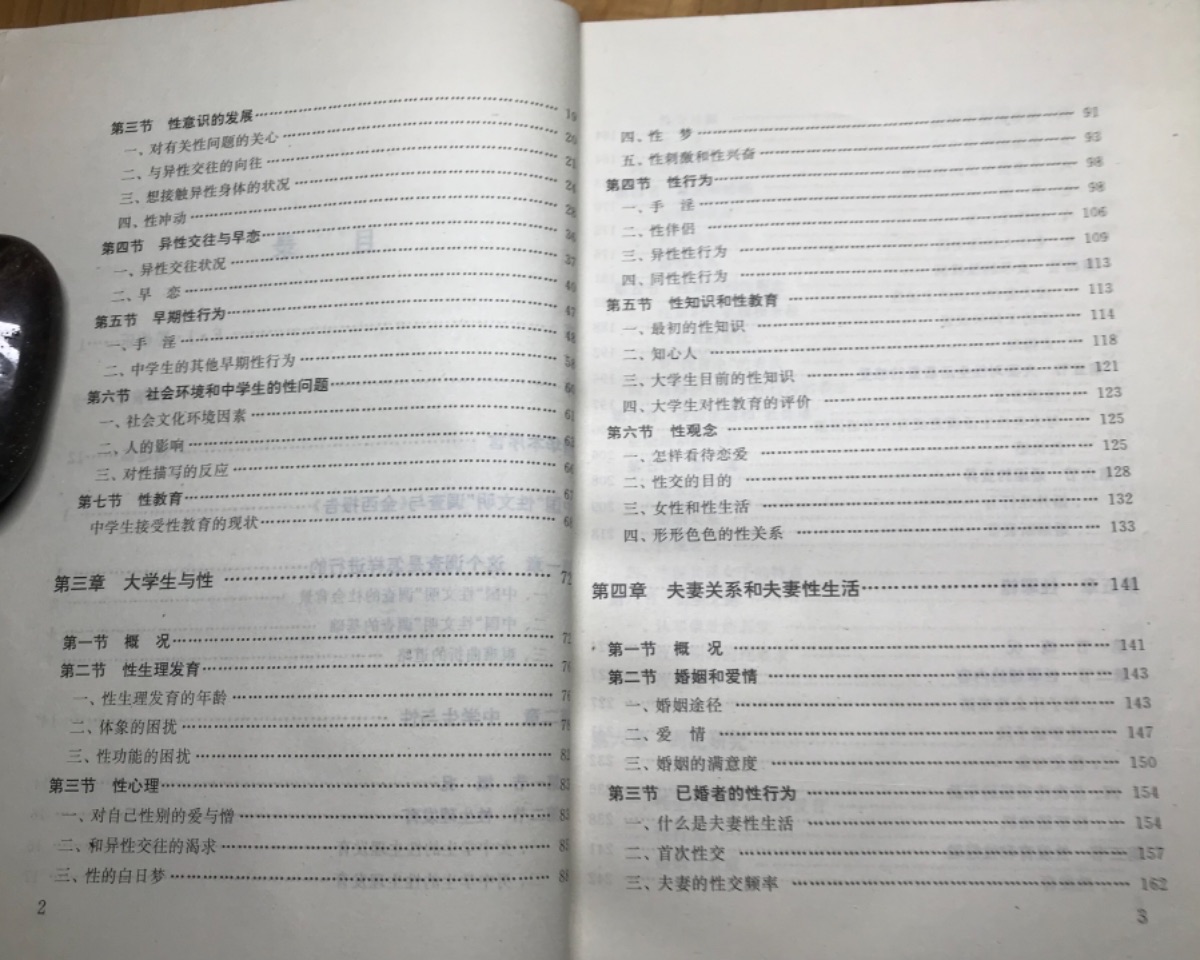 第三节 性意识的发展……19
一、对有关性问题的关心……20
二、与异性交往的向往……21
三、想接触异性身体的状况……24
四、性冲动……28
第四节 异性交往与早恋……36
一、异性交往状况……37
二、早 恋……40
第五节 早期性行为……47
一、手 淫……48
二、中学生的其他早期性行为……58
第六节 社会环境和中学生的性问题……60
一、社会文化环境因素……61
二、人的影响……63
三、对性描写的反应……66
第七节 性教育……67
中学生接受性教育的现状……68
第三章 大学生与性……72
第一节 概 况……72
第二节 性生理发育……76
一、性生理发育的年龄……76
二、体象的困扰……79
三、性功能的困扰……82
第三节 性心理……83
一、对自己性别的爱与憎……83
二、和异性交往的渴求……85
三、性的白日梦……88
2
四、性 梦……91
五、性刺激和性兴奋……93
第四节 性行为……98
一、手 淫……98
二、性伴侣……106
三、异性性行为……109
四、同性性行为……113
第五节 性知识和性教育……113
一、最初的性知识……114
二、知心人……118
三、大学生目前的性知识……121
四、大学生对性教育的评价……123
第六节 性观念……125
一、怎样看待恋爱……125
二、性交的目的……128
三、女性和性生活……132
四、形形色色的性关系……133
第四章 夫妻关系和夫妻性生活……141
第一节 概 况……141
第二节 婚姻和爱情……143
一、婚姻途径……143
二、爱 情……147
三、婚姻的满意度……150
第三节 已婚者的性行为……154
一、什么是夫妻性生活……154
二、首次性交……157
三、夫妻的性交频率……162
3